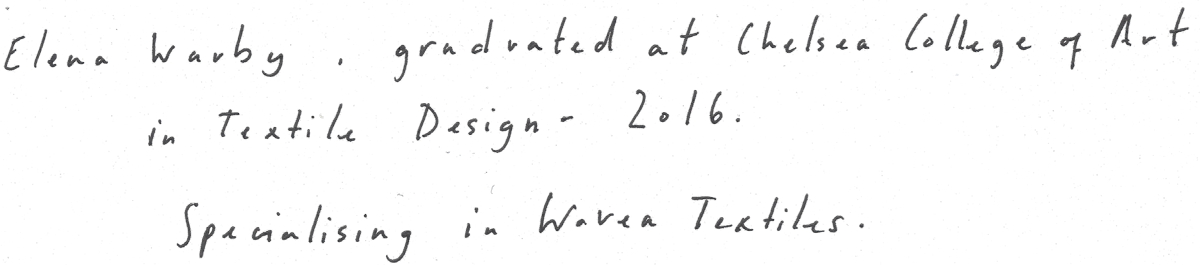 Elena Warby. graduated at Chelsea College of Art
in Textile Design - 2016.
Specialising in Woven Textiles.